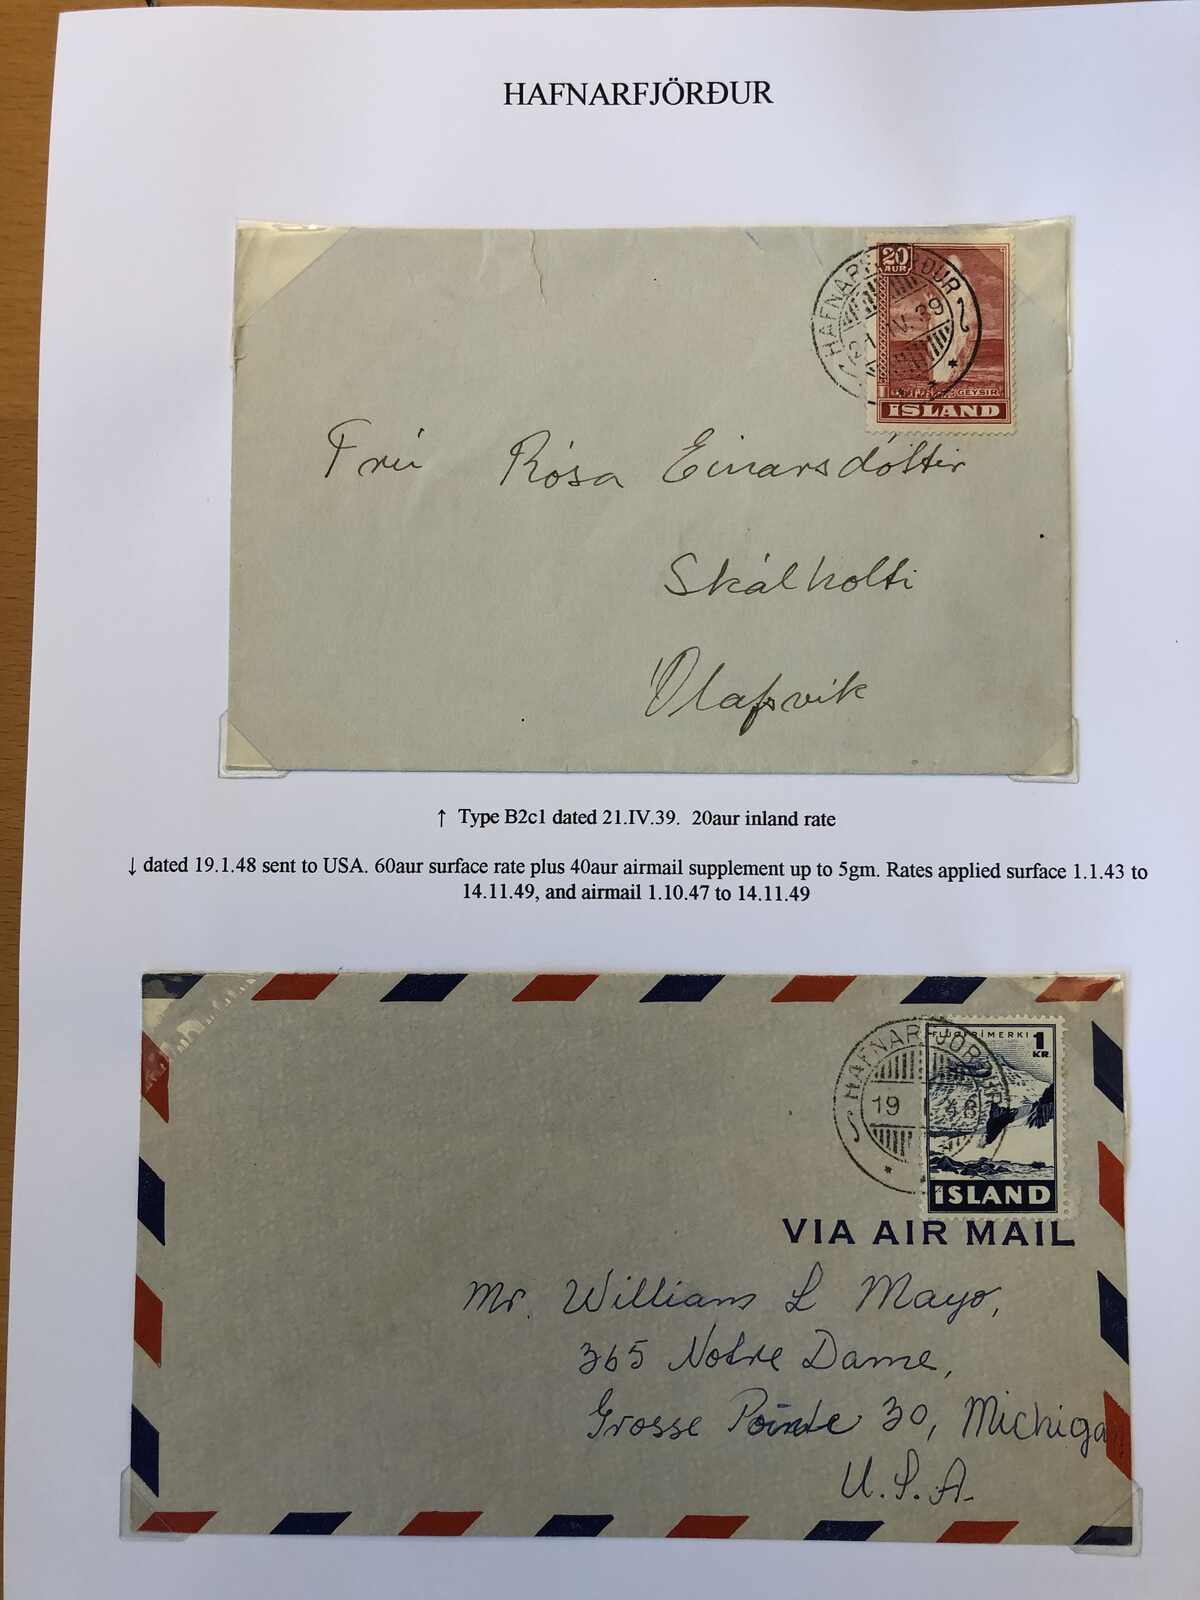 HAFNARFJÖRÐUR
20
AUR
HAFNARFJÖRÐUR
21.IV.39
GEYSIR
ÍSLAND
Frú Rósa Einarsdóttir
Skálholti
Ólafsvík
↑ Type B2c1 dated 21.IV.39. 20aur inland rate
↓ dated 19.1.48 sent to USA. 60aur surface rate plus 40aur airmail supplement up to 5gm. Rates applied surface 1.1.43 to
14.11.49, and airmail 1.10.47 to 14.11.49
FLUGFRÍMERKI
1
KR.
HAFNARFJÖRÐUR
19 I 48
ÍSLAND
VIA AIR MAIL
Mr. Willians L Mayo,
365 Notre Dame,
Grosse Pointe 30, Michigan
U.S.A.